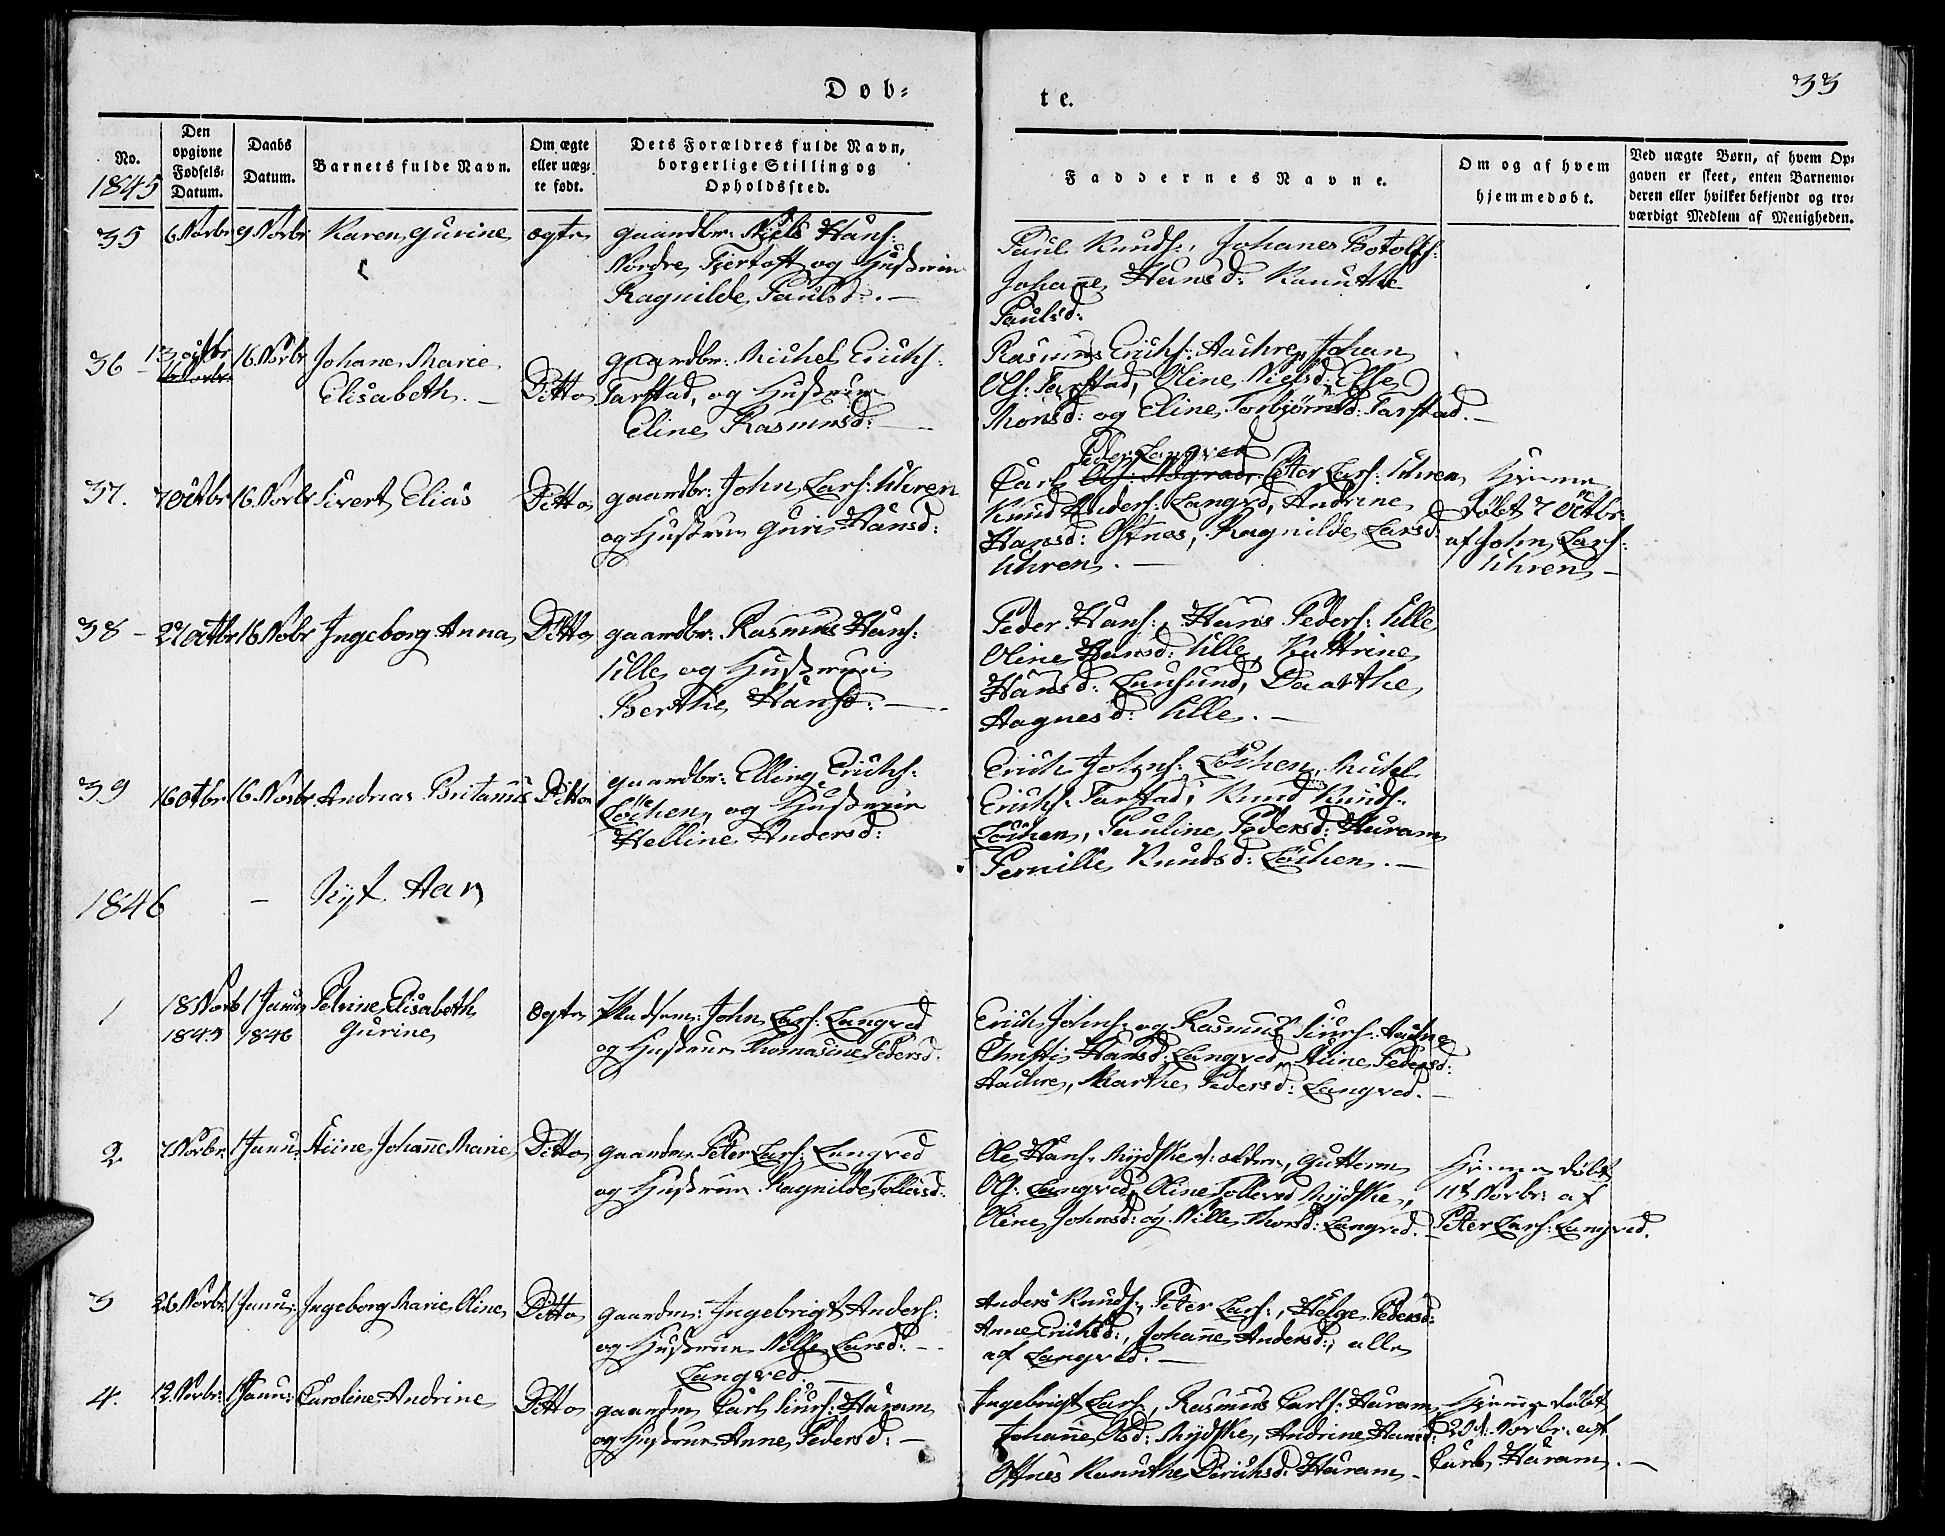 Døb-
te.
33
No.
1845
Den
opgivne
Fødsels-
Datum.
Daabs
Datum.
Barnets fulde Navn.
Om ægte
eller uæg-
te født.
Dets Forældres fulde Navn,
borgerlige Stilling og
Opholdssted.
Faddernes Navne.
Om og af hvem
hjemmedøbt.
Ved uægte Børn, af hvem Op-
gaven er skeet, enten Barnemo-
deren eller hvilket bekjendt og tro-
værdigt Medlem af Menigheden.
35 6 Novbr 9 Novbr Karen Gurine ægte gaardbr: Niels Hans:
Nordre Fjertoft og Hustrue
Ragnilde Paulsd: . —
Paul Knuds:, Johanes Botolfs:
Johanne Hansd: Kanuthe
Paulsd:
36 13 octbr 16 Novbr Johane Marie
Elisabeth. — Ditto
gaardbr: Michel Erichs:
Tarstad, og Hustrue
Eline Rasmusd: —
Rasmus Erichs: Aachre, Johan
Ols: Tarstad, Oline Nielsd: Else
Monsd: og Eline Torbjørnsd: Tarstad. —
37. 7 Octbr 16 Novbr Sivert Elias Ditto gaardbr: John Lars: Uhren
og Hustrue Guri Hansd:
Peder Langved
Carl Peter Lars: Uhren
Knud Anders: Langved, Andrine
Hansd: Ofnes, Ragnilde Larsd:
Uhren. —
Hjemme
døbt 7 Octbr:
af John Lars:
Uhren —
38 - 27 Octbr 16 Nobr Ingeborg Anna Ditto gaardbr: Rasmus Hans:
Ulle og Hustrue
Berthe Hansd: —
Peder Hans:, Hans Peders: Ulle
Oline Hansd: Ulle, Kathrine
Hansd: Lausund, Daarthe
Aagnesd: Ulle. —
39 16 Otbr 16 Novbr Andreas Britanus Ditto gaardbr: Elling Erichs:
Løchen, og Hustrue
Helline Andersd:
Erich Johns: Løchen, Michel
Erichs: Tarstad, Knud Knuds:
Løchen, Pauline Pedersd: Haram
Pernille Knudsd: Løchen. —
1846 — Nyt Aar
1 18 Novb 1 Janu Petrine Elisabeth ægte John Lars: Langved
1845 1846 Gurine og Hustrue Thomasine Pedersd:
Erich Johns: og Rasmus Siurs: Aachre
Christi Hansd: Langved, Pedersd:
Aachre, Marthe Pedersd: Langved. —
2 7 Novbr: 1 Janu: Johanne Marie Ditto gaardm: Peter Lars: Langved
og Hustrue Ragnilde Tollevsd:
Ole Hans: Mydske d: ældre, Guttorm
Ols: Langved, Oline Tollevsd Mydske,
Oline Johnsd: og Nille Thorsd: Langved. —
Hjemme døbt
11t Novbr: af
Peter Lars: Langved.
3 26 Novbr: 1 Janu: Ingeborg Marie Oline Ditto gaardm: Ingebrigt Anders:
og Hustrue Nille Larsd: —
Langved. —
Anders Knuds:, Peter Lars:, Helge Pedersd:
Anne Erichsd:, Johanne Andersd:, alle
af Langved. —
4. 12 Novbr: 1 Janu: Caroline Andrine Ditto gaardm Carl Siurs: Haram
og Hustrue Anne Pedersd: —
Ingebrigt Lars:, Rasmus Carls: Haram,
Johanne Olsd: Mydske, Andrine Hansd:
Ofnes Kanuthe Dirichsd: Haram —
Hjemme døbt
20d: Novbr: af
Carl Haram. —